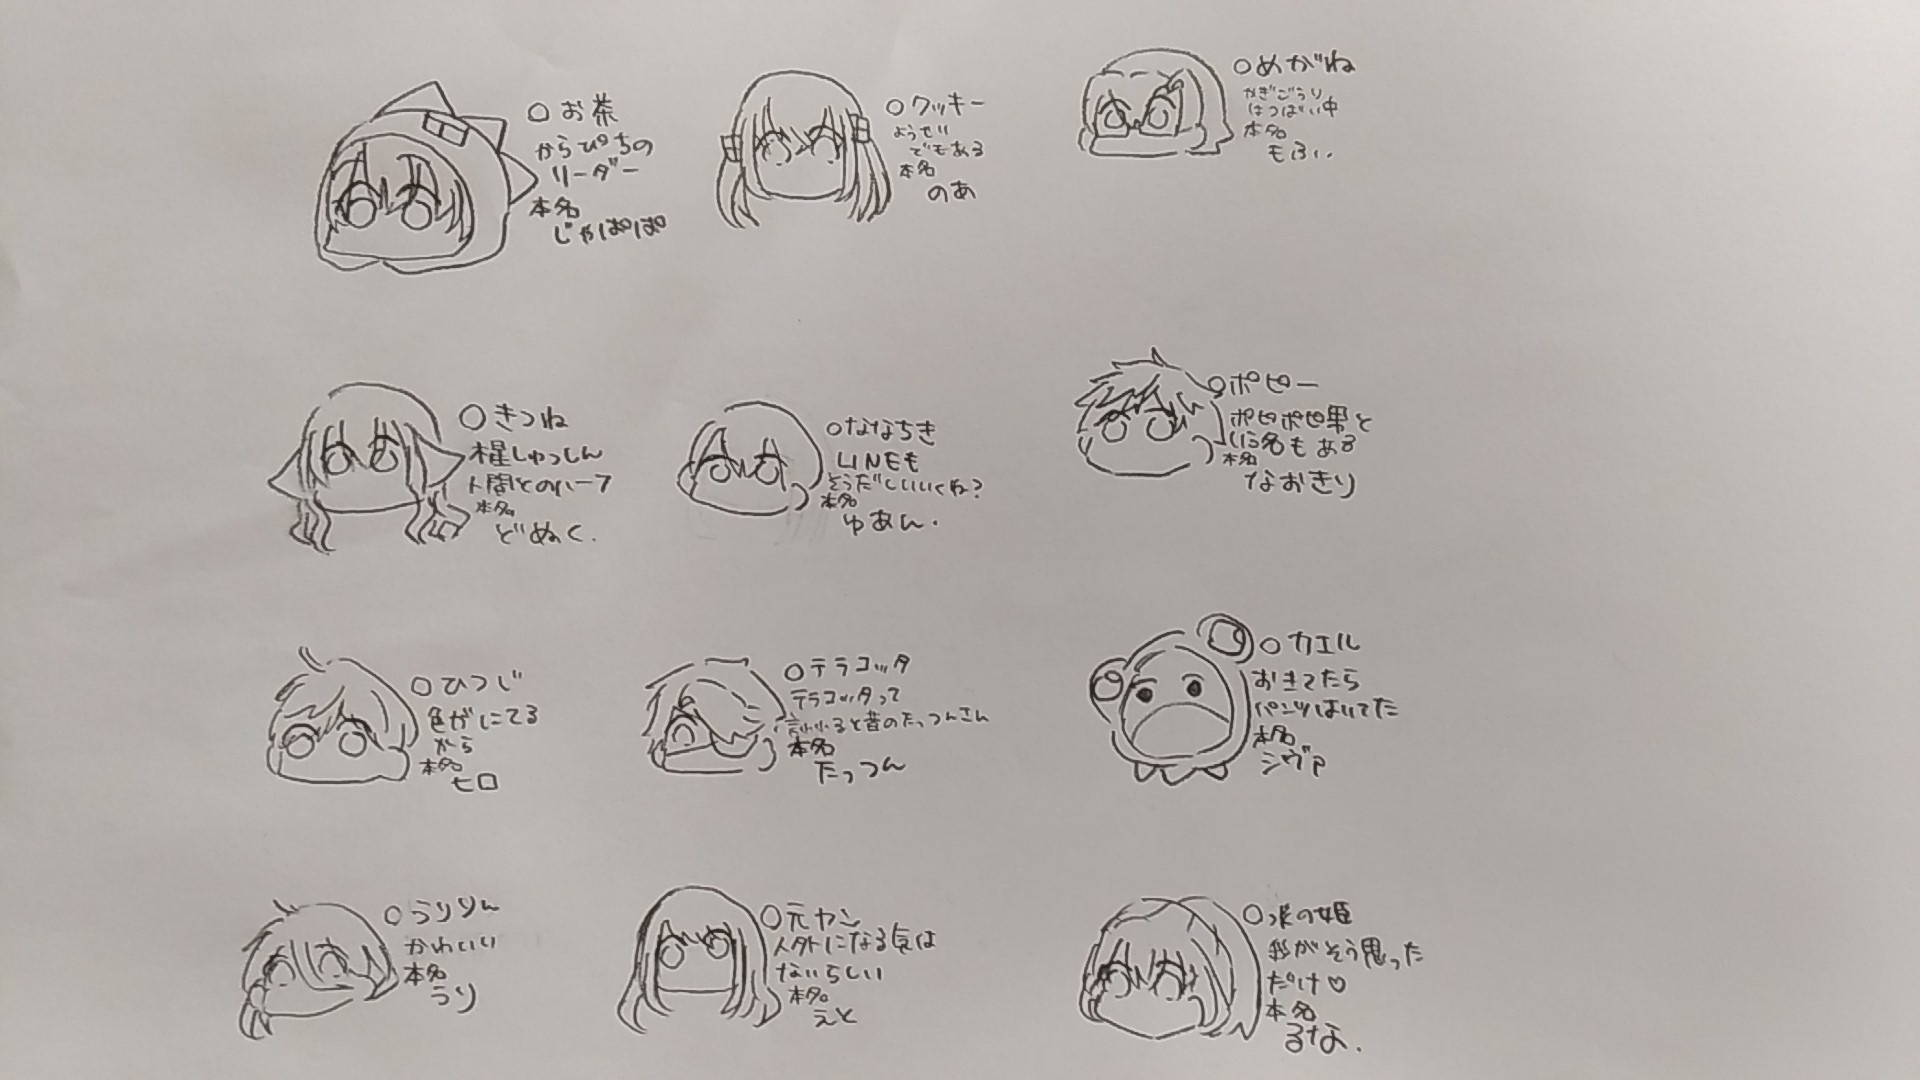 ○お茶
からぴちの
リーダー
本名
じゃぱぱ
○クッキー
ようせい
でもある
本名
のあ
○めがね
かぎごうり
はつばい中
本名
もふい
○きつね
しゅっしん
人間とのハーフ
本名
どぬく.
○ななちき
LINEも
そうだしいいくね?
本名
ゆあん.
○ポピー
ポピポピ男と
いう名もある
本名
なおきり
○ひつじ
色がにてる
から
本名
ヒロ
○テラコッタ
テラコッタって
言われると昔のたっつんさん
本名
たっつん
○カエル
おきてたら
パンツはいてた
本名
シヴァ
○うりりん
かわいい
本名
うり
○元ヤン
人外になる気は
ないらしい
本名
えと
○の姫
私がそう思った
だけ♡
本名
るな.